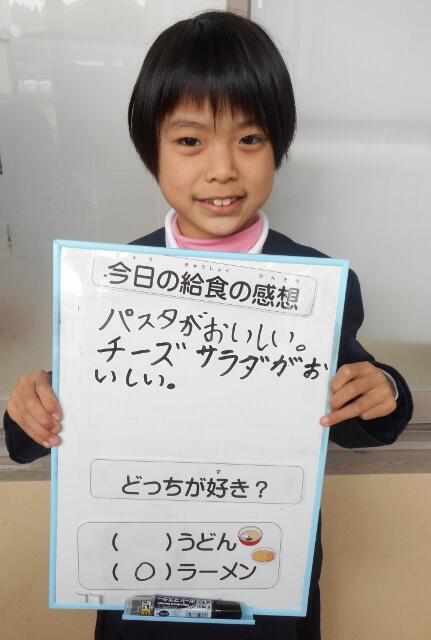 今日の給食の感想
パスタがおいしい。
チーズサラダがお
いしい。
どっちが好き？
（　）うどん
（○）ラーメン